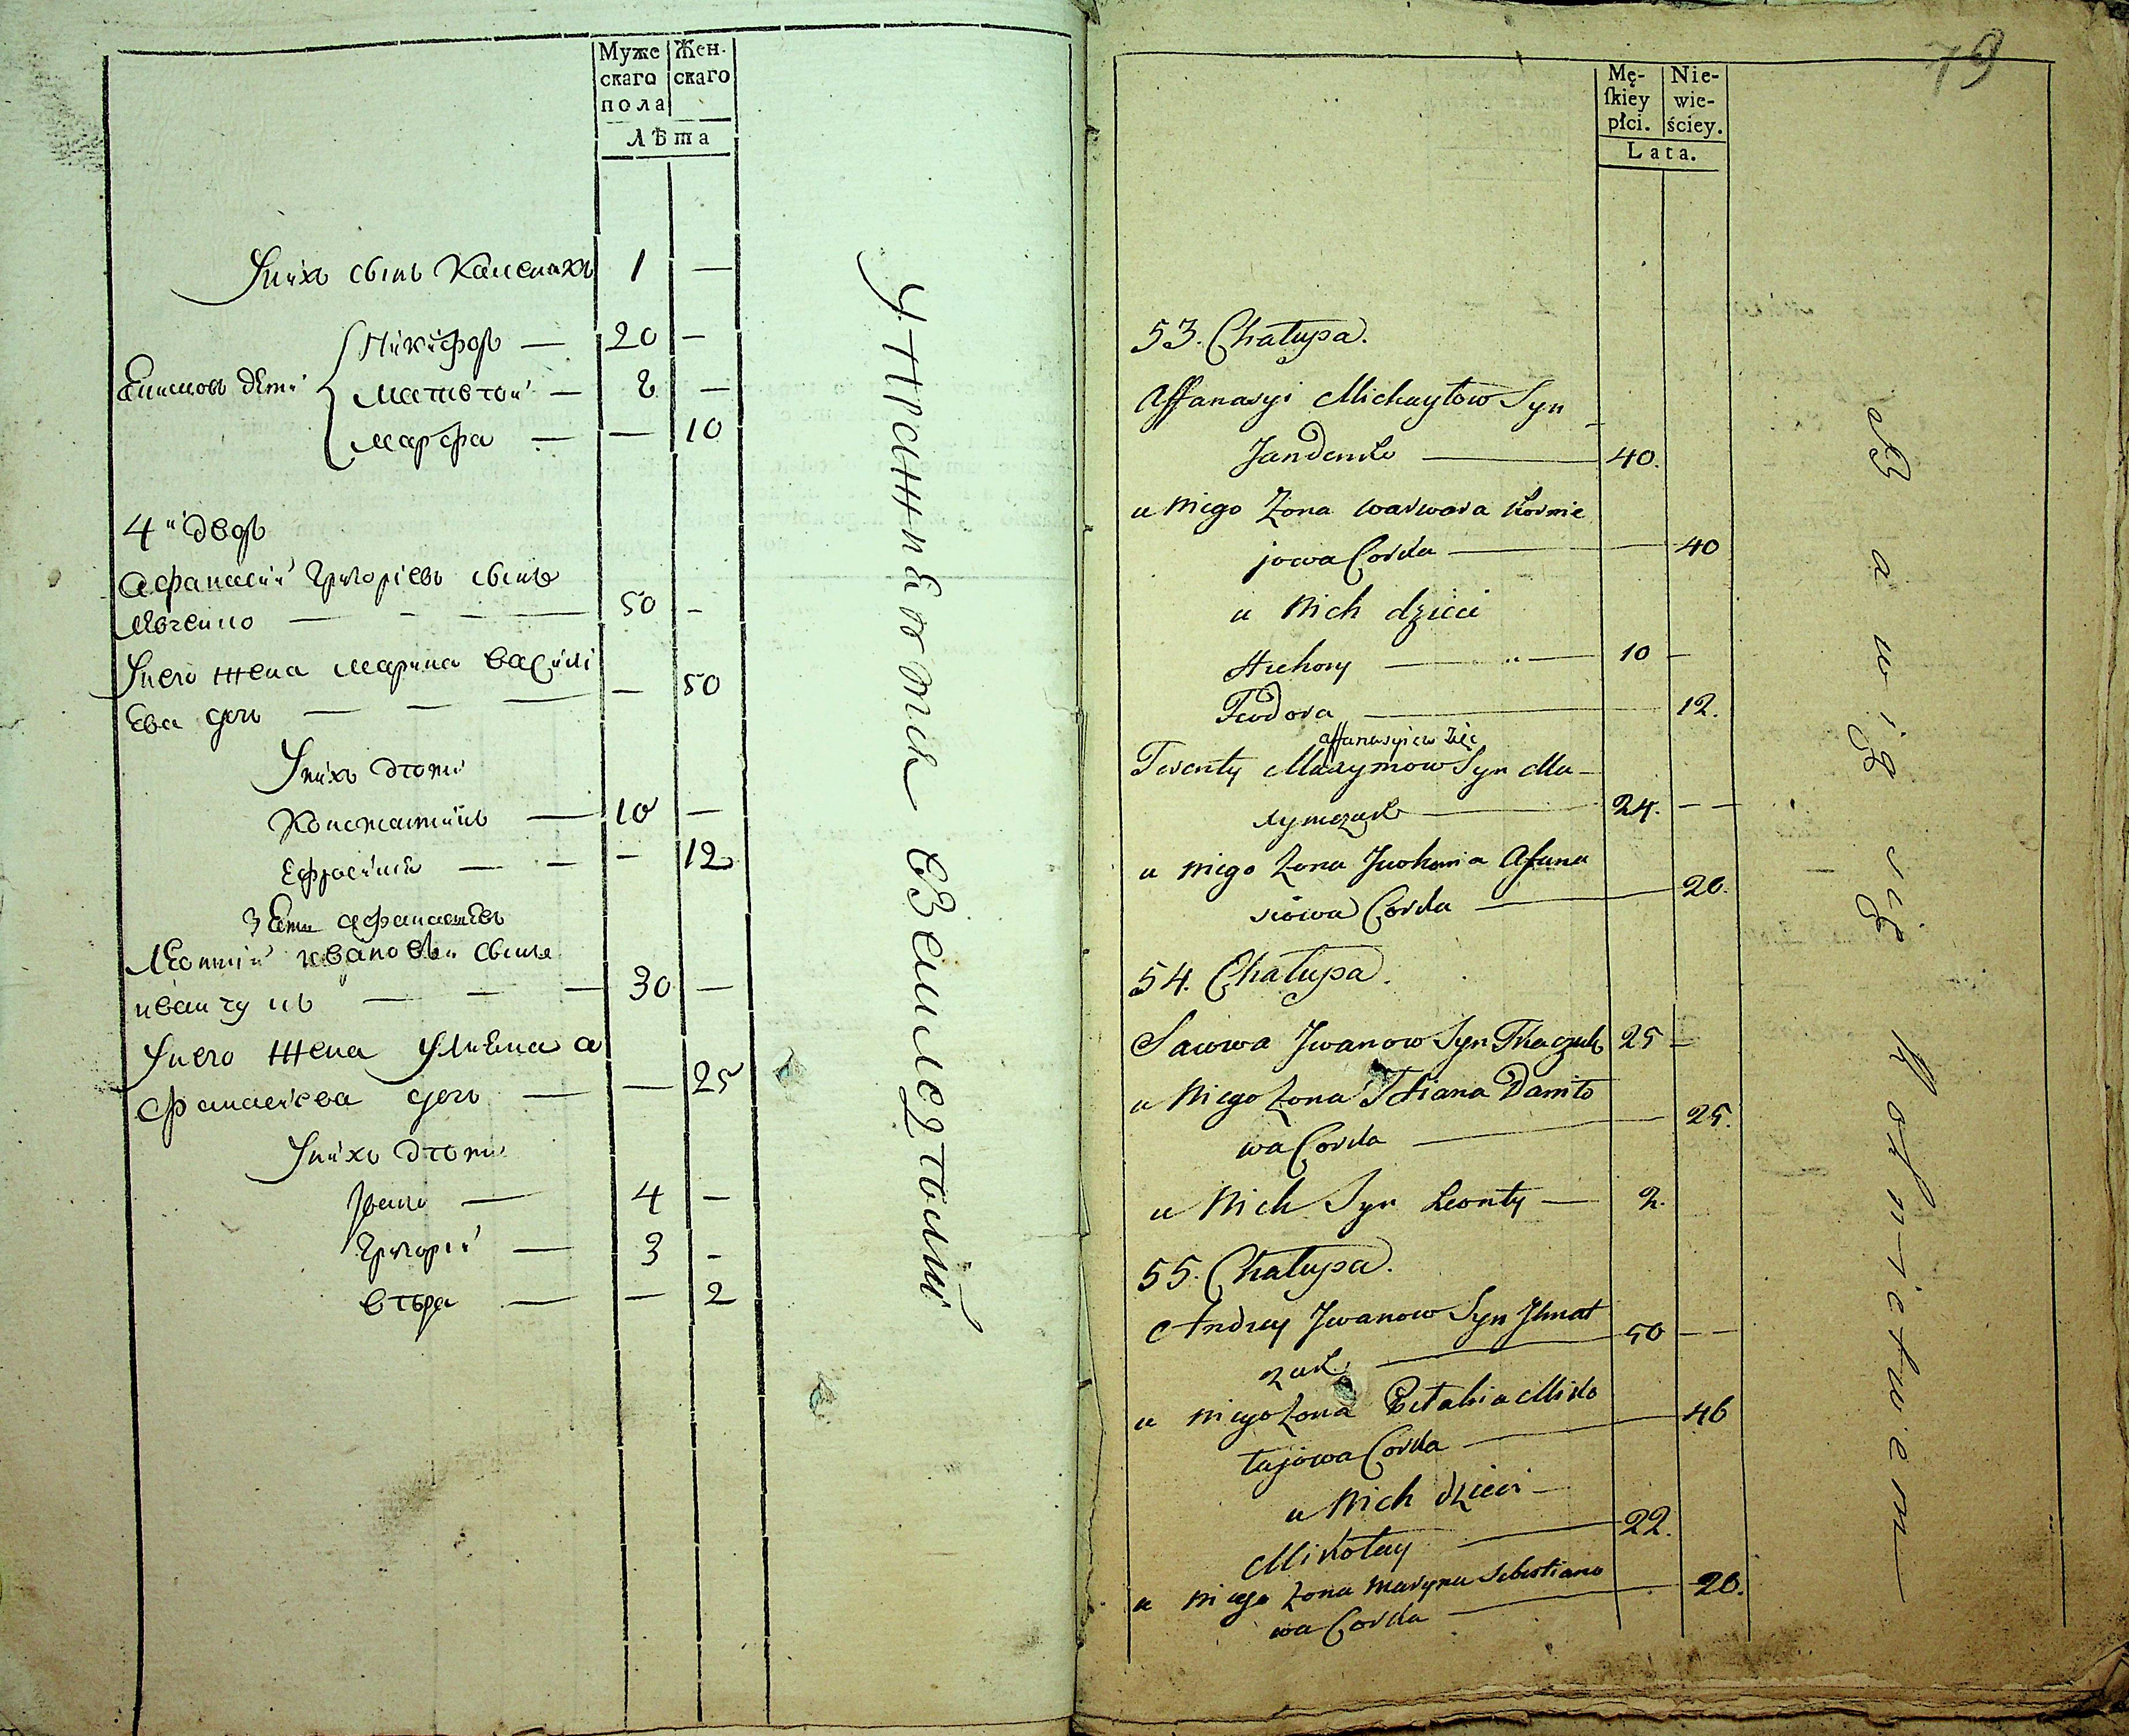 Муже
скаго
пола
Жен-
скаго
Лѣта
Унихъ сынъ
1 —
Никифоръ — 20 —
дѣти Матвѣй — 8 —
Марфа — — 10
4й дворъ
Афанасий Григорiевъ сынъ
— — — 50 —
Унего жена Марина Васили
ева дочь — — — — 50
Унихъ дѣти
Константинъ — 10 —
Ефросиния — — — 12
Зять Афанасиевъ
Леонтий Ивановъ сынъ
Иванчукъ — — — 30 —
Унего жена Улиана А
фанасиева дочь — — 25
Унихъ дѣти
Иванъ — 4 —
Григорий — 3 —
Вѣра — — 2
Упражняются въ земледѣлии
79
Mę-
ſkiey
płci.
Nie-
wie-
ściey.
Lata.
53. Chałupa.
Affanasyi Michayłow Syn
Jandenko — 40.
u Niego Żona Warwara Kornie
jowa Corka — 40
u Nich dzieci
Hrehory — " — 10 —
Teodora — 12.
Affanasyiew Zięć
Terenty Maxymow Syn Ma-
xymczuk — 24. — —
u Niego Żona Juchimia Afana
siowa Corka — 20.
54. Chałupa.
Sawwa Jwanow Syn Tkaczuk 25 —
u Niego Żona Tatiana Daniło
wa Corka — 25.
u Nich Syn Leonty — 2.
55. Chałupa.
Andrey Jwanow Syn Jhnat
czuk — 50 — —
u Niego Żona Pelahia Miko
łajowa Corka — 46
u Nich dzieci —
Mikołay — 22.
u Niego Żona Maryna Sebestiano
wa Corka — 20.
Bawią się Rolnictwem